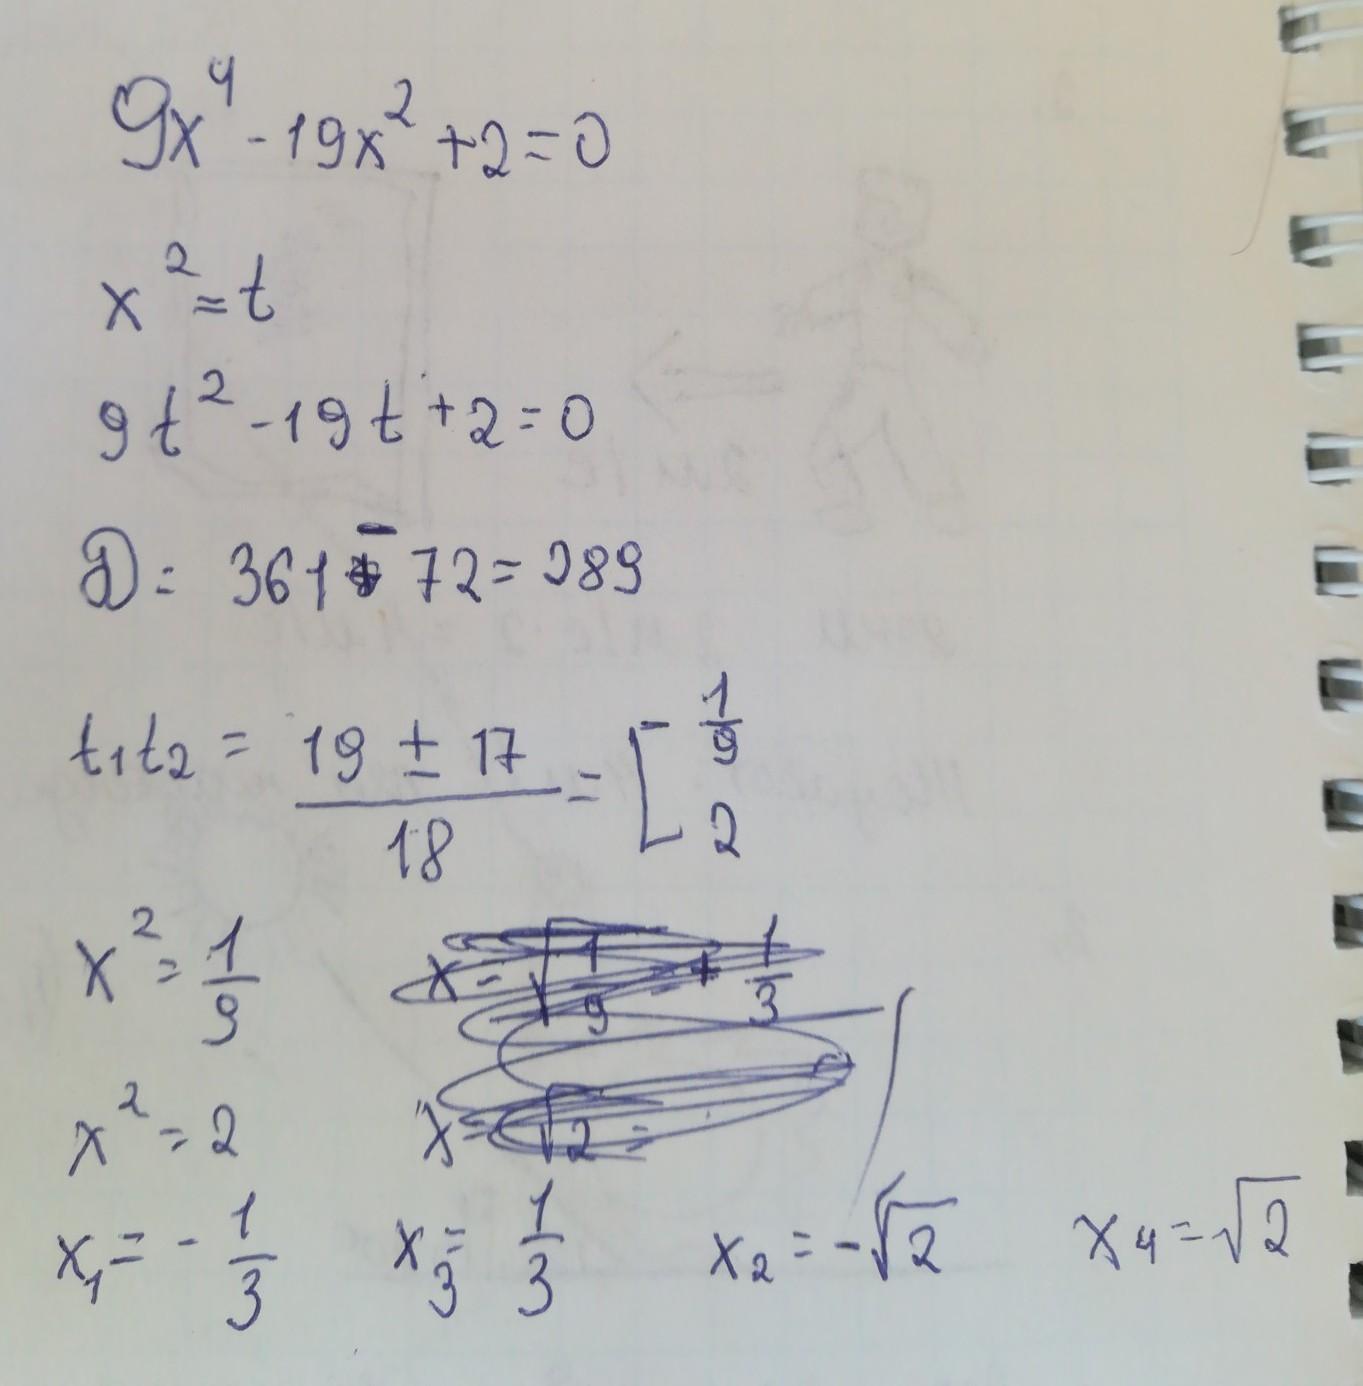 9x⁴ - 19x² + 2 = 0
x² = t
9t² - 19t + 2 = 0
D = 361 - 72 = 289
t₁t₂ = (19 ± 17)/18 = [ 1/9
2
x² = 1/9 x = √(1/9) = + 1/3
x² = 2 x = √2 =
x₁ = - 1/3 x₃ = 1/3 x₂ = -√2 x₄ = √2